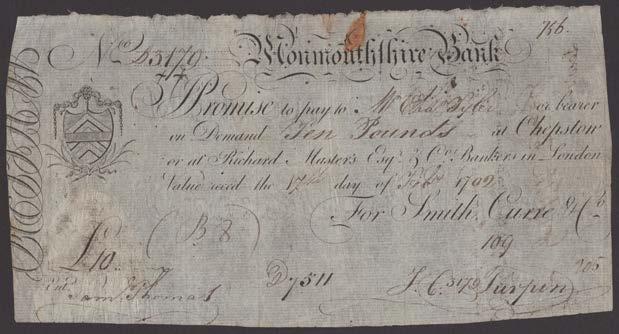 756
No. D3179 Monmouthshire Bank
I Promise to pay to Mr Chas Tyler or bearer
on Demand Ten Pounds at Chepstow
or at Richard Master's Esqr. & Co. Bankers in London
Value reced the 17th day of Febr 1792
For Smith, Curre & Co
(B 8)
109
£10
D7511
3179
105
Ent. Sam. Thomas
J. C. Turpin